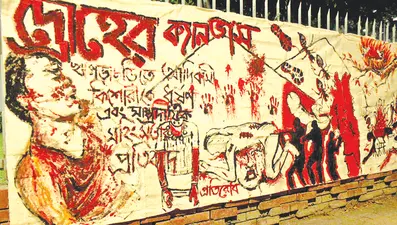 দ্রোহের ক্যানভাস
খাগড়াছড়িতে মারমা
কিশোরীকে ধর্ষণ
এবং সাম্প্রদায়িক
প্রতিবাদ
প্রতিরোধ